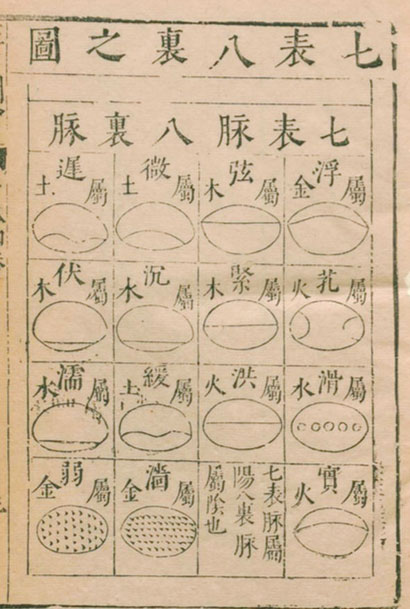 七表八裏之圖
七表脉八裏脉
浮屬金
芤屬火
滑屬水
實屬火
弦屬木
緊屬木
洪屬火
七表脉屬
陽八裏脉
屬陰也
微屬土
沉屬水
緩屬土
濇屬金
遲屬土
伏屬木
濡屬水
弱屬金